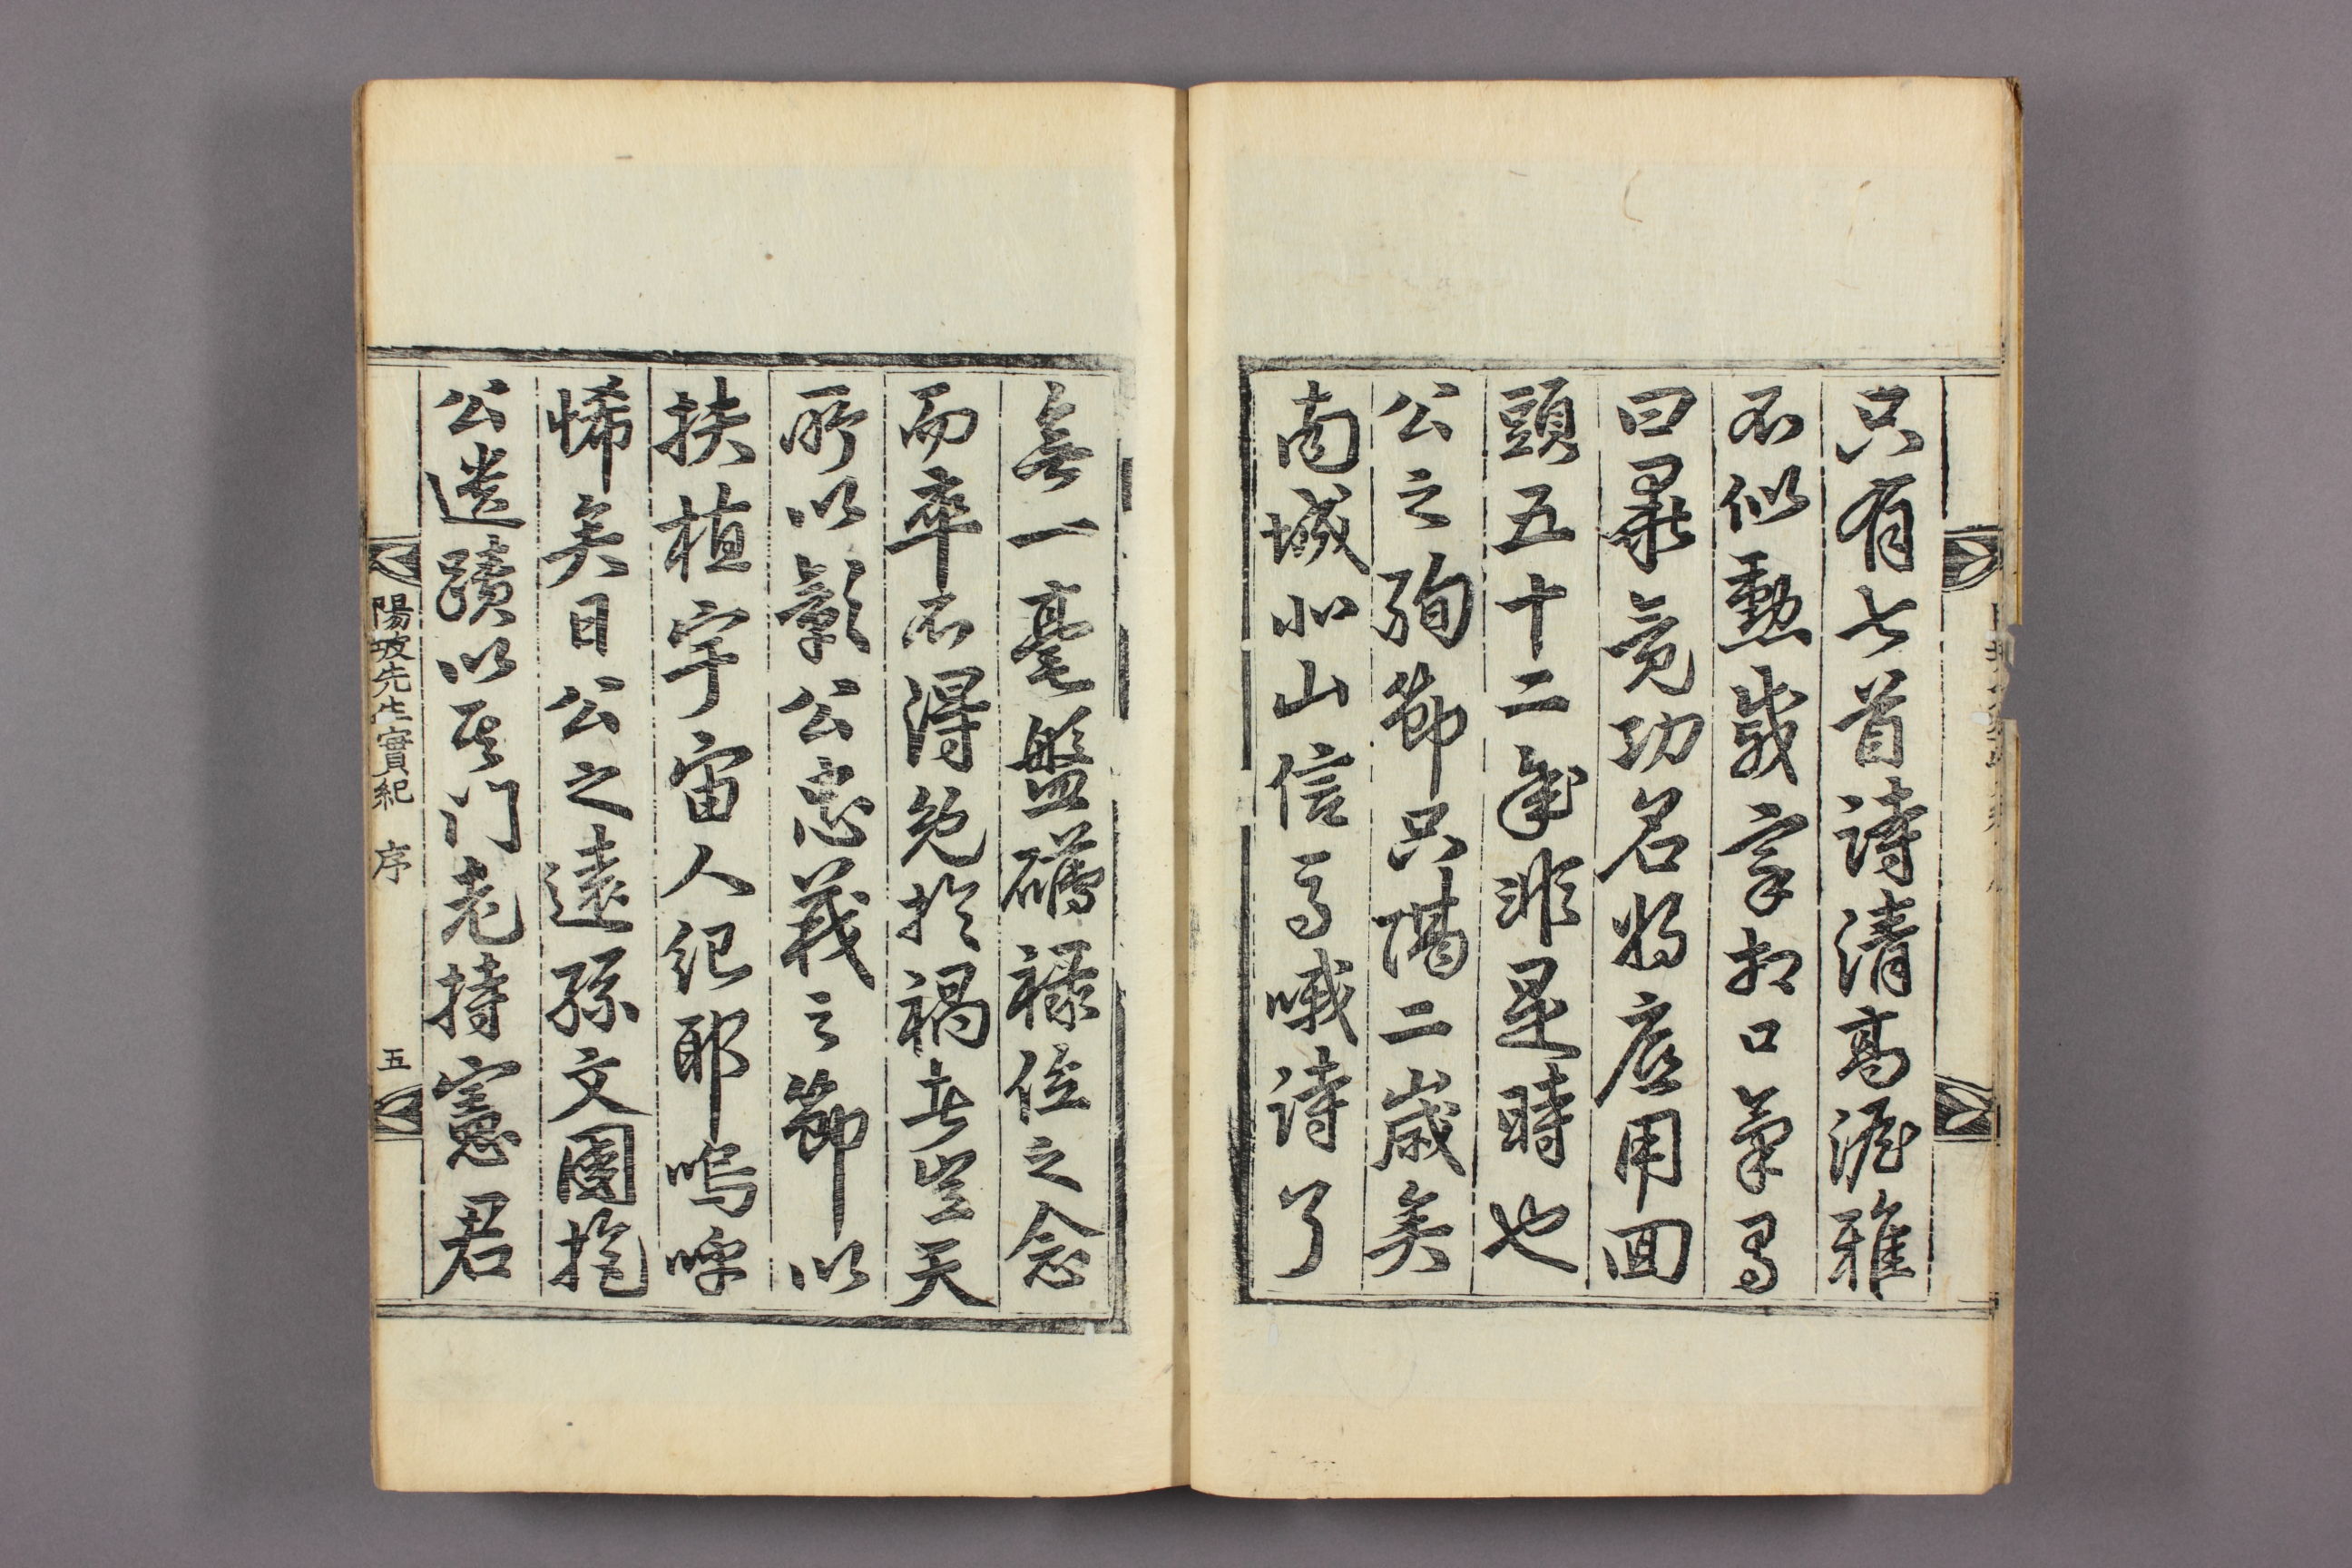 只有七首詩清高澹雅
不似勳戚家相口氣有
曰畢竟功名將底用回
頭五十二年非是時也
公之殉節只隔二歲矣
南城北山信馬哦詩了
無一毫盤礴祿位之念
而卒不得免於禍者豈天
所以彰公忠義之節以
扶植宇宙人紀耶嗚呼
悕矣日公之遠孫文國抱
公遺蹟以其門老持憲君
陽坡先生實紀 序 五